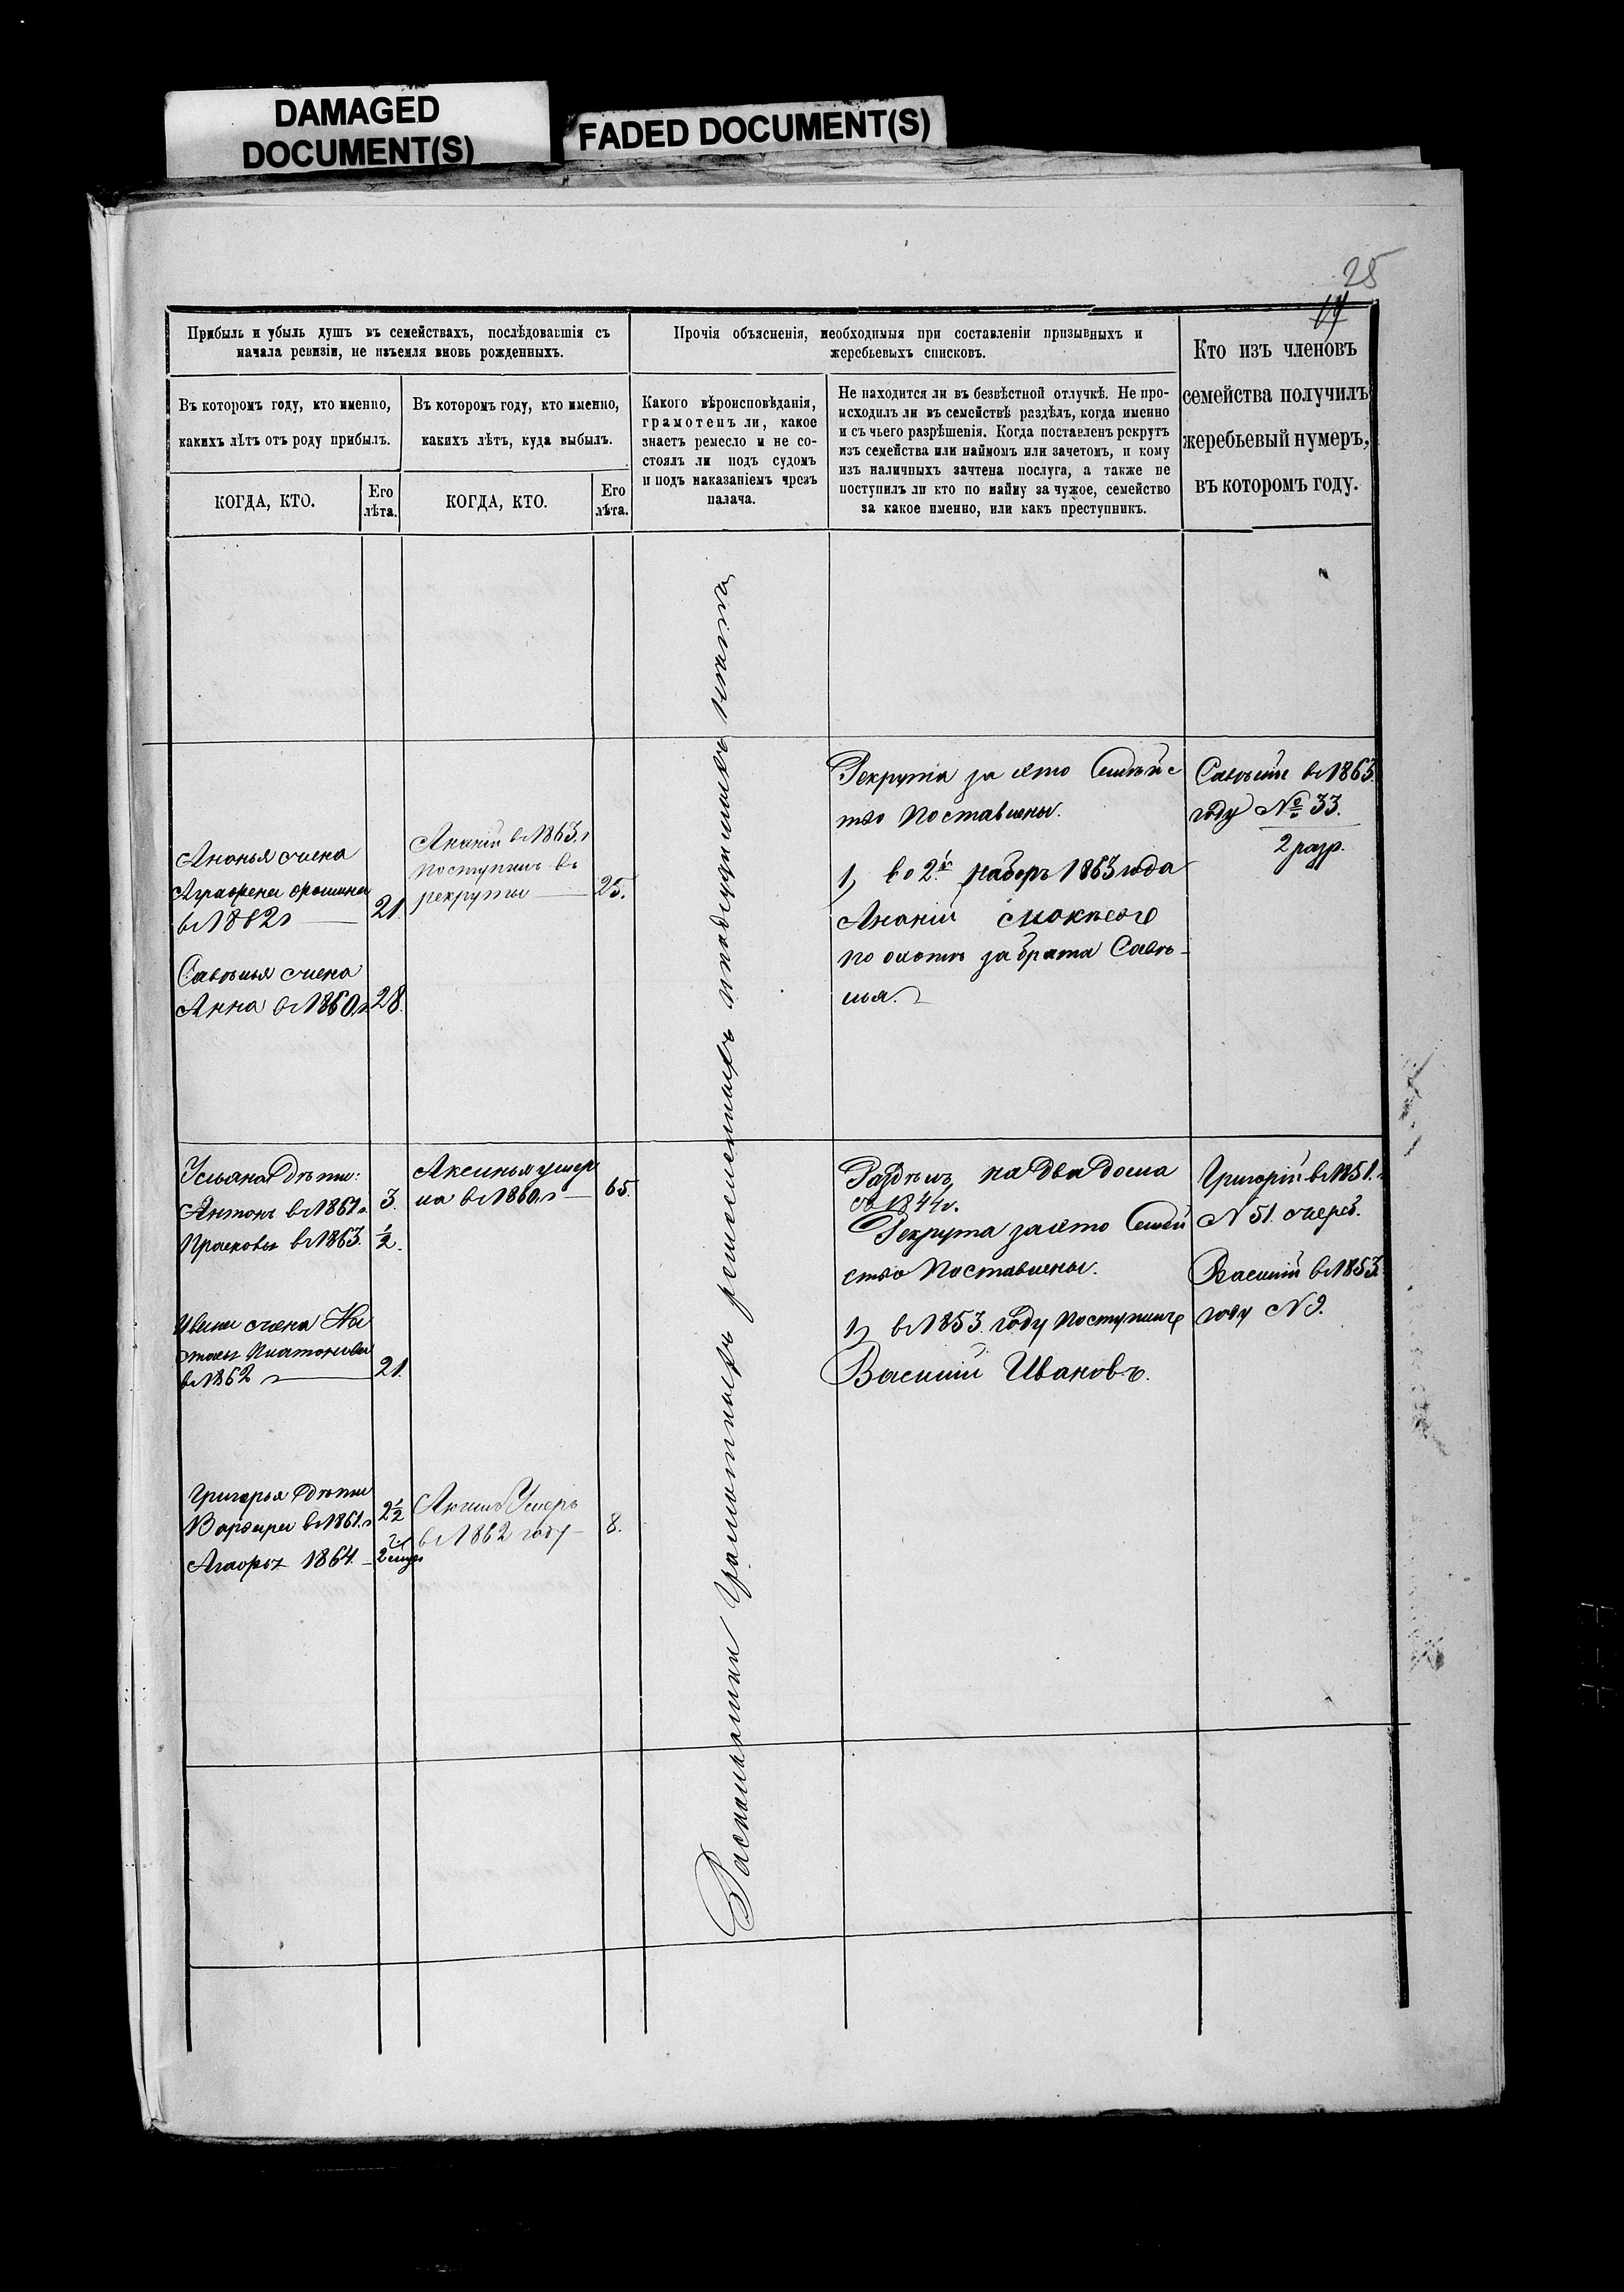 DAMAGED
DOCUMENT(S)
FADED DOCUMENT(S)
25
Прибыль и убыль душъ въ семействахъ, послѣдовавшія съ
начала ревизіи, не изъемля вновь рожденныхъ.
Прочія объясненія, необходимыя при составленіи призывныхъ и
жеребьевыхъ списковъ.
Кто изъ членовъ
семейства получилъ
жеребьевый нумеръ,
въ которомъ году.
Въ которомъ году, кто именно,
какихъ лѣтъ отъ роду прибылъ.
Въ которомъ году, кто именно,
какихъ лѣтъ, куда выбылъ.
Какого вѣроисповѣданія,
грамотенъ ли, какое
знаетъ ремесло и не со-
стоялъ ли подъ судомъ
и подъ наказаніемъ чрезъ
палача.
Не находится ли въ безвѣстной отлучкѣ. Не про-
исходилъ ли въ семействѣ раздѣлъ, когда именно
и съ чьего разрѣшенія. Когда поставленъ рекрутъ
изъ семейства или наймомъ или зачетомъ, и кому
изъ наличныхъ зачтена послуга, а также не
поступилъ ли кто по найму за чужое, семейство
за какое именно, или какъ преступникъ.
КОГДА, КТО.
Его
лѣта.
КОГДА, КТО.
Его
лѣта.
Ананья жена
Аграфена
в 1862 г 21
Савелья жена
Анна в 1860 г 28.
Ананій в 1863 г
поступилъ въ
рекруты 25.
Рекрута за ето Семѣйс
тво Поставлены.
1, во 2й наборъ 1863 года
Ананій
по охотѣ за брата Савѣ-
лья.
Савѣлій в 1863
году № 33.
2 разр.
Ульяна Дѣти:
Антонъ в 1861 г. 3.
Прасковья в 1863. ½.
Аксинья умер
ла в 1860 г 65.
Раздѣлъ, на два дома
съ 1844 г.
Рекрута за ето Семей
ство Поставлены.
1, в 1853 году поступилъ
Василій Ивановъ.
Григорій в 1851 г.
N 51. жереб.
Василій в 1853
году N 9.
жена На
талья Платонова
в 1862 г 21.
Григорья Дѣти
Варвара в 1861 г 2½
1864. 2
Умеръ
в 1862 году 8.
Раскольники грамотныхъ ремесленныхъ подсудимыхъ нѣтъ